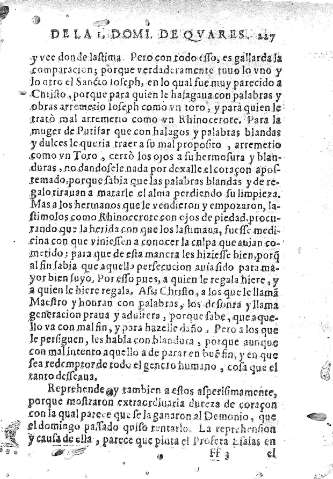 DE LA 1. DOMI. DE QVARES. 227
y vee donde lastima. Pero con todo esso, es gallarda la
comparacion; porque verdaderamente tuuo lo vno y
lo otro el Sancto Ioseph, en lo qual fue muy parecido a
Christo, porque para quien le halagaua con palabras y
obras arremetio Ioseph como vn toro, y para quien le
tratò mal arremetio como vn Rhinocerote. Para la
muger de Putifar que con halagos y palabras blandas
y dulces le queria traer a su mal proposito, arremetio
como vn Toro, cerrò los ojos a su hermosura y blan-
duras, no dandosele nada por dexalle el coraçon apos-
temado, porque sabia que las palabras blandas y de re-
galo tirauan a matarle el alma perdiendo su limpieza.
Mas a los hermanos que le vendieron y empozaron, las-
timolos como Rhinocerote con ojos de piedad, procu-
rando que la herida con que los lastimaua, fuesse medi-
cina con que viniessen a conocer la culpa que auian co-
metido; para que de esta manera les hiziesse bien, porq̃
al fin sabia que aquella persecucion auia sido para ma-
yor bien suyo. Por esso pues, a quien le regala hiere, y
a quien le hiere regala. Assi Christo, a los que le llamã
Maestro y honran con palabras, los desonra y llama
generacion praua y adultera, porque sabe, que aque-
llo va con mal fin, y para hazelle daño. Pero a los que
le persiguen, les habla con blandura, porque aunque
con mal intento aquello a de parar en buẽ fin, y en que
sea redemptor de todo el genero humano, cosa que el
tanto desseaua.
Reprehende y tambien a estos asperisimamente,
porque mostraron extraordinaria dureza de coraçon
con la qual parece que se la ganaron al Demonio, que
el domingo passado quiso tentarlo. La reprehension
y causa de ella, parece que pinta el Profeta Isaias en
FF 3 el